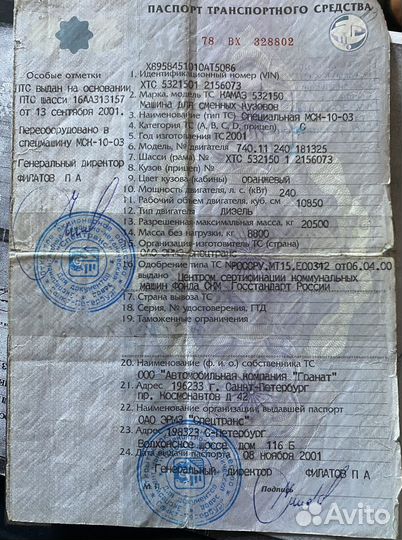 ПАСПОРТ ТРАНСПОРТНОГО СРЕДСТВА
78 ВХ 328802
Особые отметки
ПТС выдан на основании
ПТС шасси 16АА313157
от 13 сентября 2001.
Переоборудовано в
спецмашину МСК-10-03
Генеральный директор
ФИЛАТОВ П А
X8958451010AT5086
1. Идентификационный номер (VIN)
XTC 5321501 2156073
2. Марка, модель ТС КАМАЗ 532150
Машина для сменных кузовов
3. Наименование (тип ТС) Специальная МСК-10-03
4. Категория ТС (A, B, C, D, прицеп) C
5. Год изготовления ТС 2001
6. Модель, № двигателя 740.11 240 181325
7. Шасси (рама) № XTC 532150 1 2156073
8. Кузов (прицеп) №
9. Цвет кузова (кабины) оранжевый
10. Мощность двигателя, л. с. (кВт) 240
11. Рабочий объем двигателя, куб. см 10850
12. Тип двигателя ДИЗЕЛЬ
13. Разрешенная максимальная масса, кг 20500
14. Масса без нагрузки, кг 8800
15. Организация изготовитель ТС (страна)
16. Одобрение типа ТС №РОССРУ.МТ15.Е00312 от 06.04.00
выдано Центром сертификации коммунальных
машин Фонда СКМ Госстандарт России
17. Страна вывоза ТС
18. Серия, № удостоверения, ГТД
19. Таможенные ограничения
20. Наименование (ф. и. о.) собственника ТС
ООО "Автомобильная компания "Гранат"
21. Адрес 196233 г. Санкт-Петербург
пр. Космонавтов д 42
22. Наименование организации, выдавшей паспорт
ОАО ЭРМЗ "Спецтранс"
23. Адрес 198323 С-Петербург
Волхонское шоссе дом 116 Б
24. Дата выдачи паспорта 08 ноября 2001
Генеральный директор ФИЛАТОВ П А
М. П. Подпись
Avito